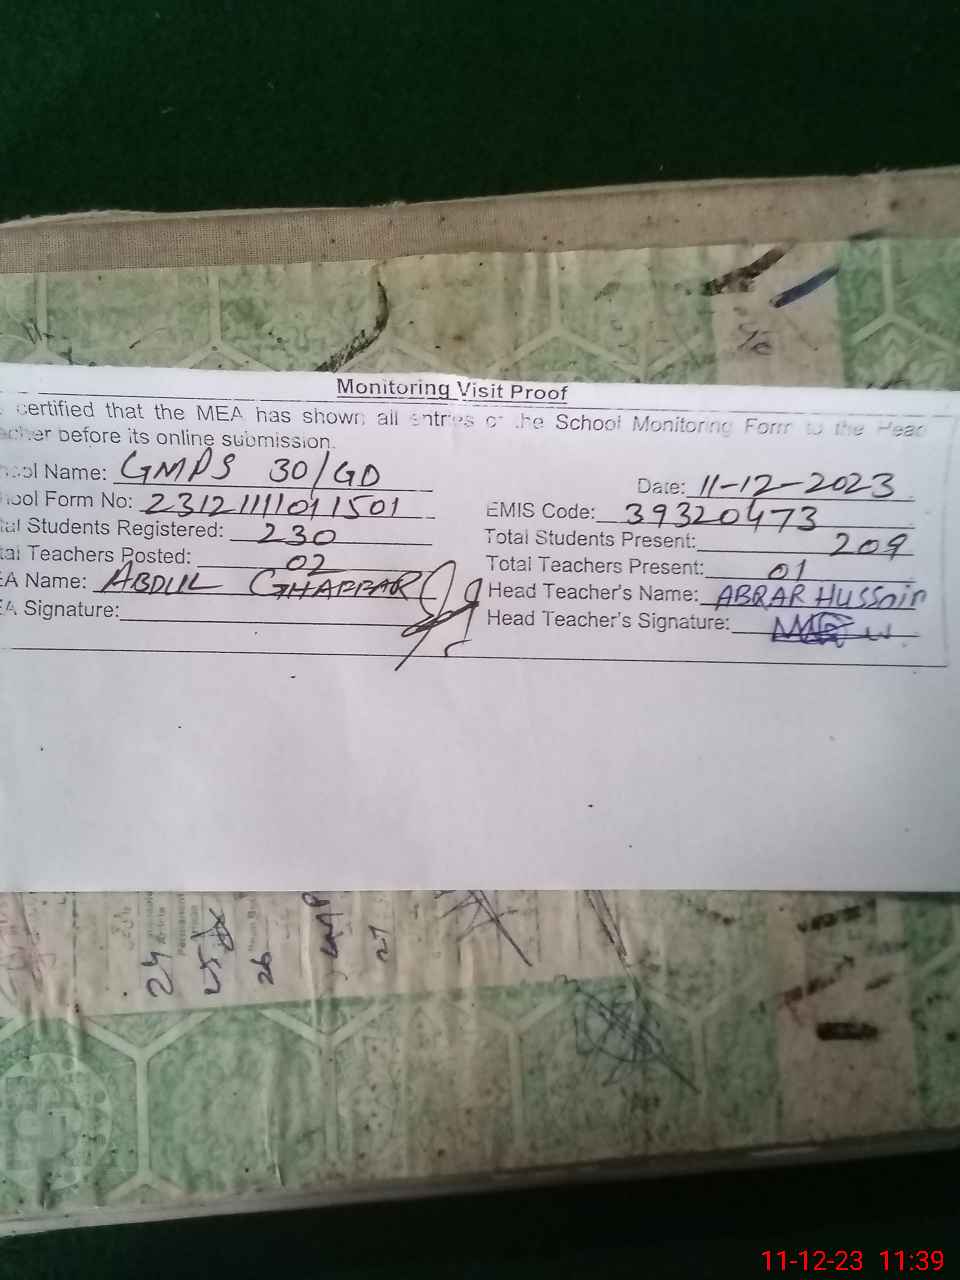 Monitoring Visit Proof
certified that the MEA has shown all entries of the School Monitoring Form to the Head
acher before its online submission.
ool Name: GMPS 30/GD Date: 11-12-2023
ool Form No: 23121111011501 EMIS Code: 39320473
tal Students Registered: 230 Total Students Present: 209
tal Teachers Posted: 02 Total Teachers Present: 01
EA Name: ABDUL GHAFFAR Head Teacher's Name: ABRAR HUSSain
EA Signature: Head Teacher's Signature:
24
25
26
27
11-12-23 11:39